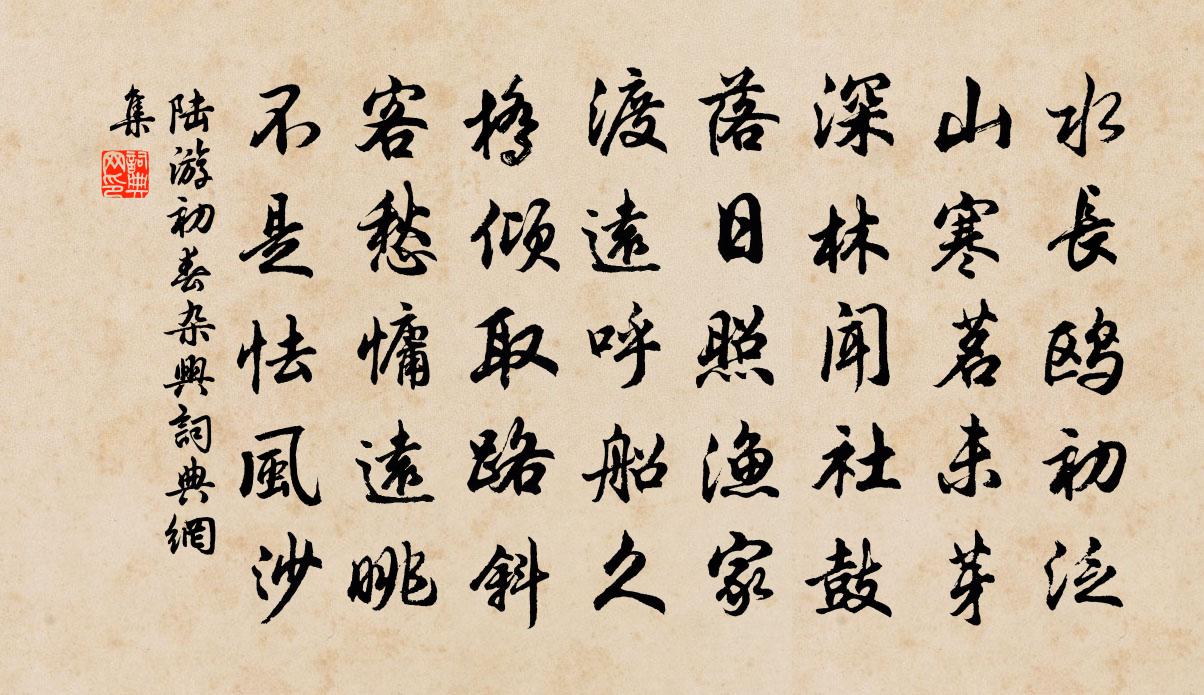 水長鷗初泛
山寒茗未芽
深林聞社鼓
落日照漁家
渡遠呼船久
橋傾取路斜
客愁慵遠眺
不是怯風沙
陆游初春杂興詞典網
集
詞典
网印